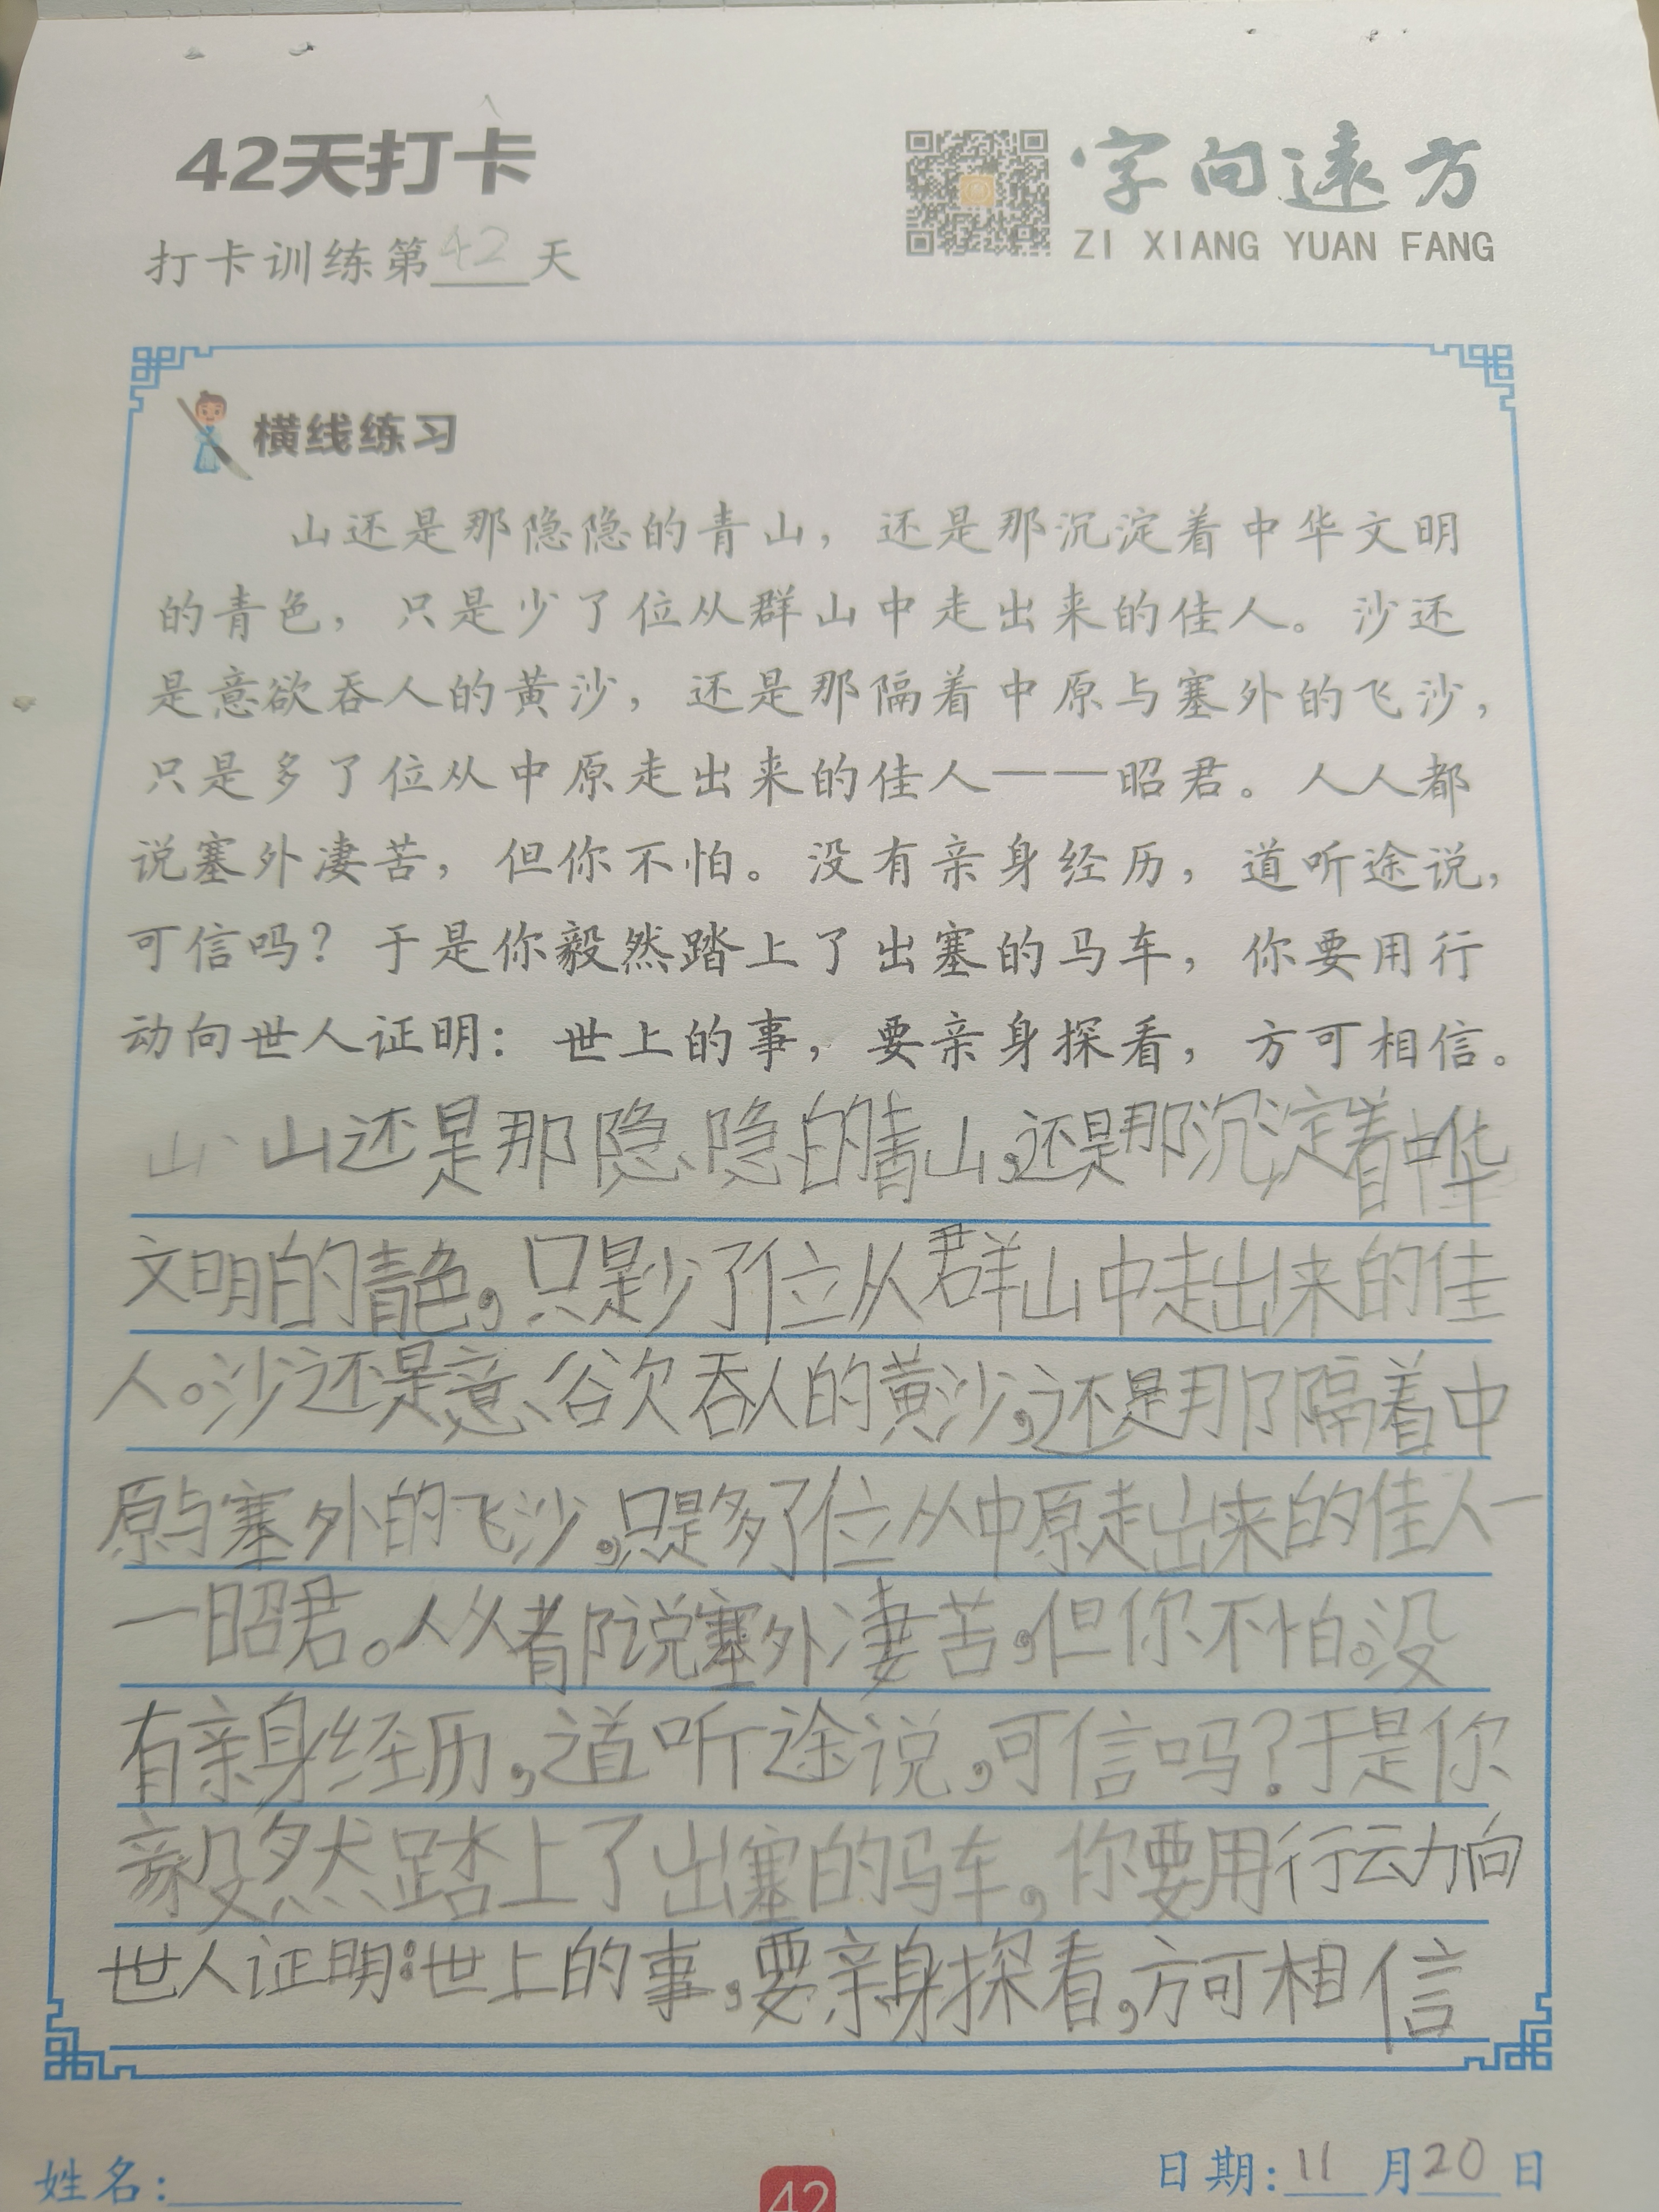 42天打卡
字向遠方
ZI XIANG YUAN FANG
打卡训练第42天
横线练习
山还是那隐隐的青山，还是那沉淀着中华文明
的青色，只是少了位从群山中走出来的佳人。沙还
是意欲吞人的黄沙，还是那隔着中原与塞外的飞沙，
只是多了位从中原走出来的佳人——昭君。人人都
说塞外凄苦，但你不怕。没有亲身经历，道听途说，
可信吗？于是你毅然踏上了出塞的马车，你要用行
动向世人证明：世上的事，要亲身探看，方可相信。
山 山还是那隐隐的青山，还是那沉淀着中华
文明的青色，只是少了位从群山中走出来的佳
人。沙还是意欲吞人的黄沙，还是那隔着中
原与塞外的飞沙，只是多了位从中原走出来的佳人一
一昭君。人人都说塞外凄苦，但你不怕。没
有亲身经历，道听途说，可信吗？于是你
毅然踏上了出塞的马车，你要用行动向
世人证明：世上的事，要亲身探看，方可相信
姓名：
42
日期：11月20日